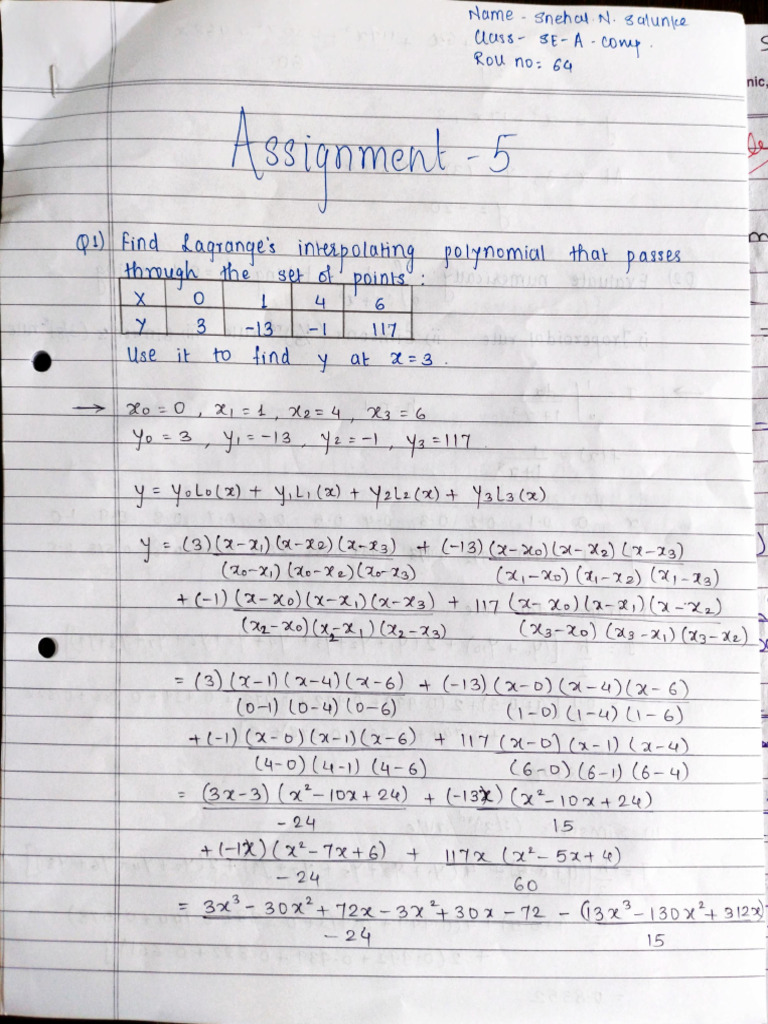 Name - Snehal N. Salunke
Class - SE-A-Comp.
Roll no: 64
nic,
Assignment - 5
Q1) Find Lagrange's interpolating polynomial that passes
through the set of points :
X 0 1 4 6
Y 3 -13 -1 117
Use it to find y at x=3.
→ x₀=0, x₁=1, x₂=4, x₃=6
y₀=3, y₁=-13, y₂=-1, y₃=117
y = y₀L₀(x) + y₁L₁(x) + y₂L₂(x) + y₃L₃(x)
y = (3)(x-x₁)(x-x₂)(x-x₃) + (-13)(x-x₀)(x-x₂)(x-x₃)
(x₀-x₁)(x₀-x₂)(x₀-x₃) (x₁-x₀)(x₁-x₂)(x₁-x₃)
+(-1)(x-x₀)(x-x₁)(x-x₃) + 117(x-x₀)(x-x₁)(x-x₂)
(x₂-x₀)(x₂-x₁)(x₂-x₃) (x₃-x₀)(x₃-x₁)(x₃-x₂)
= (3)(x-1)(x-4)(x-6) + (-13)(x-0)(x-4)(x-6)
(0-1)(0-4)(0-6) (1-0)(1-4)(1-6)
+(-1)(x-0)(x-1)(x-6) + 117(x-0)(x-1)(x-4)
(4-0)(4-1)(4-6) (6-0)(6-1)(6-4)
= (3x-3)(x²-10x+24) + (-13x)(x²-10x+24)
-24 15
+(-1x)(x²-7x+6) + 117x(x²-5x+4)
-24 60
= 3x³-30x²+72x-3x²+30x-72 - (13x³-130x²+312x)
-24 15